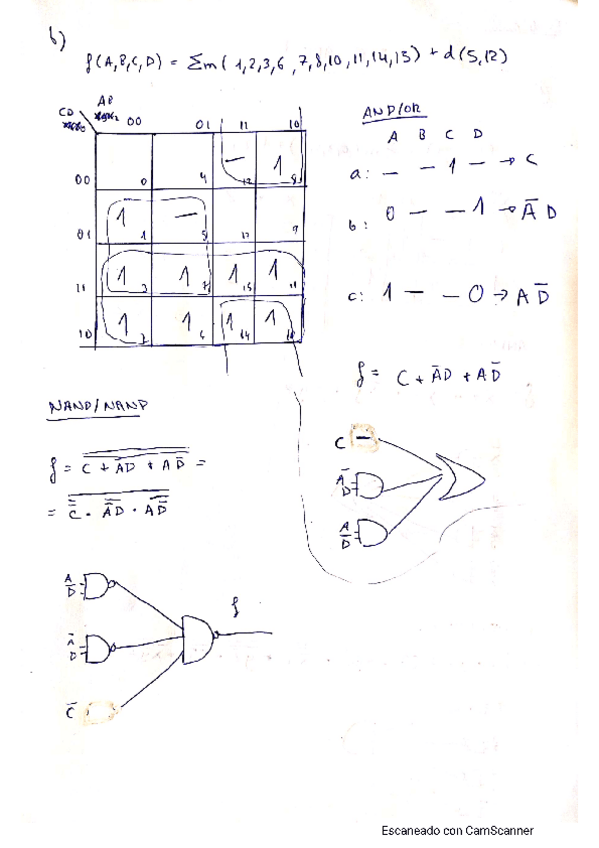 b)
f(A,B,C,D) = Σm( 1,2,3,6 ,7,8,10,11,14,15) + d(5,12)
AB
CD 00 01 11 10
00 0 4 – 12 1 8
01 1 1 – 5 13 9
11 1 3 1 7 1 15 1 11
10 1 2 1 6 1 14 1 10
AND/OR
A B C D
a: – – 1 – → C
b: 0 – – 1 → A̅ D
c: 1 – – 0 → A D̅
f = C + A̅D + AD̅
NAND/NAND
f = C + A̅D + AD̅ =
= C̅ · A̅D · AD̅
C
A̅
D
A
D̅
A
D̅
A̅
D
C̅
f
Escaneado con CamScanner